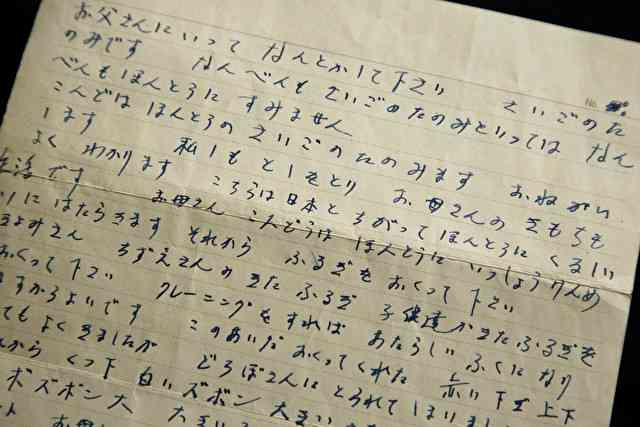 お父さんにいって なんとかして下さい さいごのた
のみです なんべんも さいごのたのみといっては なん
べんもほんとうに すみません
こんどは ほんとうの さいごのたのみます おねがい
します 私しもとしをとり お母さんのきもちも
よく わかります こちらは日本とちがってほんとうにくるしい
生活です お母さん こんどうは ほんとうに いっしょうけんめ
いにはたらきます それから ふるぎをおくって下さい
きよみさん ちずえさんのきたふるぎ 子供達がきたふるぎを
おくって下さい クレーニングをすれば あたらしいふくになり
ますからよいです このあいだおくってくれた 赤い下ぎ上下
てもよくきましたが どろぼさんにとられてしまいまし
から くつ下 白いズボン 大きい
ボズボン大 大きい